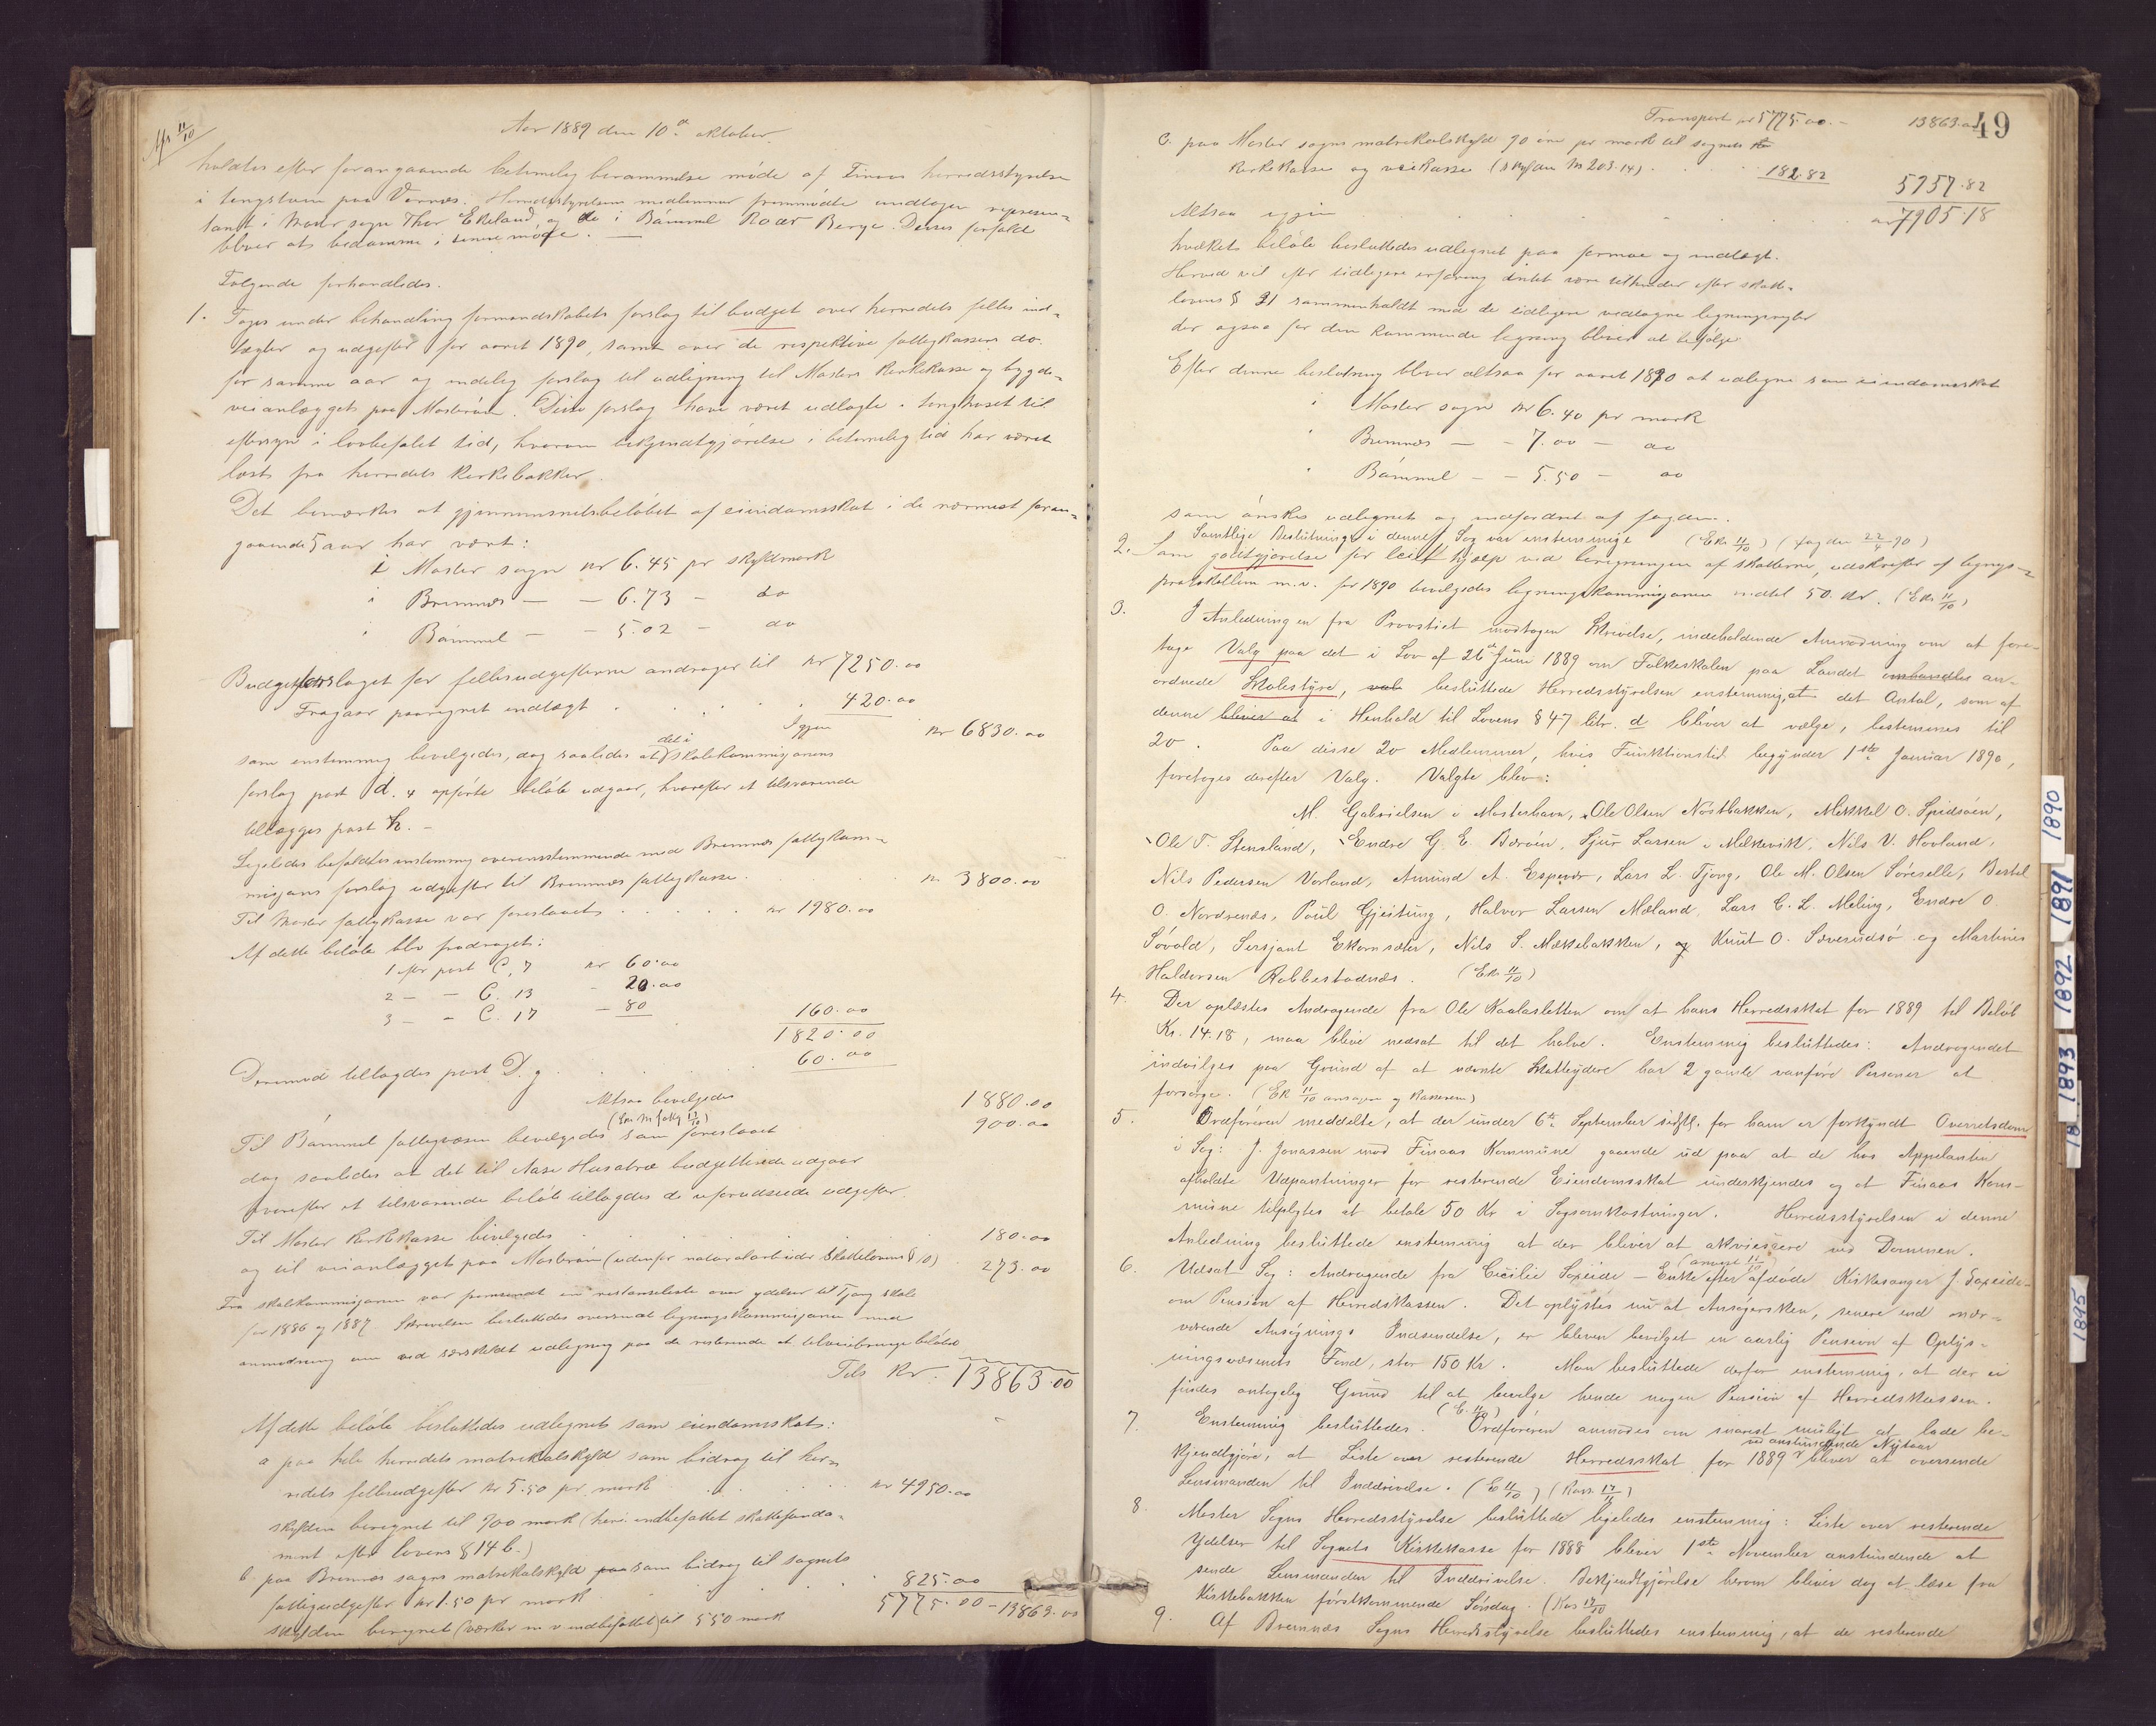 Afs 11/10
Aar 1889 den 10de oktober
holdtes efter forangaaende betimelig berammelse møde af Finaas herredsstyrelse
i tingstuen paa Vornæs. Herredsstyrelsens medlemmer fremmødte undtagen represen-
tant i Moster sogn Thor Ekeland og de i Bømmel Roar Berge. Deres forfald
bliver at bedømme i senere møde. —
Følgende forhandledes.
1. Toges under behandling formandskabets forslag til budget over herredets felles ind-
tægter og udgifter for aaret 1890, samt over de respektive fattigkassers do.
for samme aar og endelig forslag til udligning til Mosters kirkekasse og bygde-
veianlægget paa Mosterøen. Disse forslag have været udlagte i tinghuset til
eftersyn i lovbefalet tid, hvorom bekjendtgjørelse i betimelig tid har været
læst fra herredets kirkebakker.
Det bemærkes at gjennemsnitsbeløbet af eiendomsskat i de nærmest foran-
gaaende 5 aar har vært:
i Moster sogn kr 6.45 pr skyldmark
i Bremnes — — 6.73 — do
i Bømmel — — 5.02 — do
Budgetforslaget for fellesudgifterne andrager til kr 7250.00
Fragaar paaregnet indtægt . . . . 420.00
Igjen kr 6830.00
som enstemmig bevilgedes, dog saaledes at det i skolekommisjonens
forslag post d. 4 opførte beløb udgaar, hvorefter et tilsvarende
tillægges post h. —
Ligeledes befaldtes enstemmig overensstemmende med Bremnes fattigkom-
misjons forslag udgifter til Bremnes fattigkasse . . . kr 3800.00
Til Moster fattigkasse var foreslaaet . . . . kr 1980.00
Af dette beløb blev fradraget:
1 efter post C, 7 kr 60.00
2 — — C. 13 - 20.00
3 — — C. 17 — 80
160.00
1820.00
Derimod tillagdes post D. g . . . . . 60.00
Altsaa bevilgedes 1880.00
Til Bømmel fattigvæsen bevilgedes som foreslaaet 900.00
dog saaledes at det til Aase Husabræ budgetterede udgaar
hvorefter et tilsvarende beløb tillagdes de uforudseede udgifter.
Til Moster kirkekasse bevilgedes . . . . . 180.00
og til veianlægget paa Mosterøen (udenfor naturalarbeide skattelovens § 10) . 273.00
Fra skolekommisjonen var fremsendt en restanseliste over ydelser til Tjong skole
for 1886 og 1887. Skrivelsen besluttedes oversendt ligningskommisjonen med
anmodning om ved særskildt udligning paa de resterende at tilveiebringe beløbet
Tils Kr. 13863.00
Af dette beløb besluttedes udlignet som eiendomsskat:
a paa hele herredets matrikulskyld som bidrag til her-
redets fellesudgifter kr 5.50 pr mark . . . . . kr 4950.00
skylden beregnet til 900 mark (heri indbefattet skattefunda-
ment efter lovens § 14 b.)
b. paa Bremnes sogns matrikulskyld som bidrag til sognets
fattigudgifter kr 1.50 pr mark . . . . 825.00
skylden beregnet (verker m v indbefattet) til 550 mark 5775.00 – 13863.00
49
Transport kr 5775.00. — 13863.00
C. paa Moster sogns matrikulskyld 90 øre pr mark til sognets
kirkekasse og veikasse (skylden M 203.14) . . 182.82 5957.82
Altsaa igjen . . . . . kr 7905.18
hvilket beløb besluttedes udlignet paa formue og indtægt.
Herved vil efter tidligere erfaring intet være tilhinder efter skatte-
lovens § 21 sammenholdt med de tidligere vedtagne ligningsregler
der ogsaa for den kommende ligning bliver at befølge.
Efter denne beslutning bliver altsaa for aaret 1890 at udligne som eiendomsskat
i Moster sogn kr 6.40 pr mark
" Bremnes — - 7.00 — do
" Bømmel — - 5.50 — do
som ønskes udlignet og indfordret af fogden.
Samtlige Beslutninger i denne Sag var enstemmige (Eks 11/10) (fogden 22/4 90)
2. Som godtgjørelse for leiet hjælp ved beregningen af skatterne, udskrifter af lignings-
protokollen m.v. for 1890 bevilgedes ligningskommisjonen indtil 50 kr. (Eks 11/10)
3. I Anledningen fra Provstiet modtagen Skrivelse, indeholdende Anmodning om at fore-
tage Valg paa det i Lov af 26de Juni 1889 om Folkeskolen paa Landet an-
ordnede Skolestyre, besluttede Herredsstyrelsen enstemmig, at det Antal, som af
denne bliver at i Henhold til Lovens § 47 litr. d bliver at vælge, bestemmes til
20. Paa disse 20 Medlemmer, hvis Funktionstid begynder 1ste Januar 1890,
foretoges derefter Valg. Valgte blev:
M. Gabrielsen i Mosterhavn, Ole Olsen Nøstbakken, Mikkel O. Spidsøen,
Ole T. Stensland, Endre G. E. Børøen, Sjur Larsen i Melkevik, Nils V. Hovland,
Nils Pedersen Vorland, Amund A. Espevær, Lars L. Tjong, Ole M. Olsen Søreselle, Bertel
O. Nordrenæs, Poul Gjeitung, Halvor Larsen Mæland, Lars C. L. Meling, Endre O.
Søvold, Sersjant Ekornsæter, Nils S. Mækkebakken, Knut O. Sæverudsø og Martinus
Haldorsen Robbestadnæs. (Eks 11/10)
4. Der oplæstes Andragende fra Ole Kaalasletten om at hans Herredsskat for 1889 til Beløb
Kr. 14.18, maa blive nedsat til det halve. Enstemmig besluttedes: Andragendet
indvilges paa Grund af at nævnte Skatteydere har 2 gamle vanføre Personer at
forsørge. (Eks 11/10 ansøgeren og Kassereren)
5. Ordføreren meddelte, at der under 6te September sidstl. for ham er forkyndt Overretsdom
i Sag: J. Jonassen mod Finaas Kommune gaaende ud paa at de hos Appelantin
afholdte Udpantninger for resterende Eiendomsskat underkjendes og at Finaas Kom-
mune tilpligtes at betale 50 Kr i Sagsomkostninger. Herredsstyrelsen i denne
Anledning besluttede enstemmig at der bliver at akviescere ved Dommen.
6. Udsat Sag: Andragende fra Cecilie Sopeide — Enke efter afdøde Kirkesanger J. Sopeide
om Pension af Herredskassen. Det oplystes nu at Ansøgersken, senere end nær-
værende Ansøgnings Indsendelse, er bleven bevilget en aarlig Pension af Oplys-
ningsvæsenets Fond, stor 150 Kr. Man besluttede derfor enstemmig, at der ei
findes antagelig Grund til at bevilge hende nogen Pension af Herredskassen.
7. Enstemmig besluttedes. (E. 11/10) Ordføreren anmodes om snarest muligt at lade be-
kjendtgjøre, at Liste over resterende Herredsskat for 1889 ved anstundende Nytaar bliver at oversende
Lensmanden til Inddrivelse. (E 11/10) (Kass. 17/11)
8. Moster Sogns Herredsstyrelse besluttede ligeledes enstemmig: Liste over resterende
Ydelser til Sognets Kirkekasse for 1888 bliver 1ste November anstundende at
sende Lensmanden til Inddrivelse. Bekjendtgjørelse herom bliver dog at læse fra
Kirkebakken førstkommende Søndag. (Kas 17/10)
9. Af Bremnæs Sogns Herredsstyrelse besluttedes enstemmig, at de resterende
1890
1891
1892
1893
18
1895